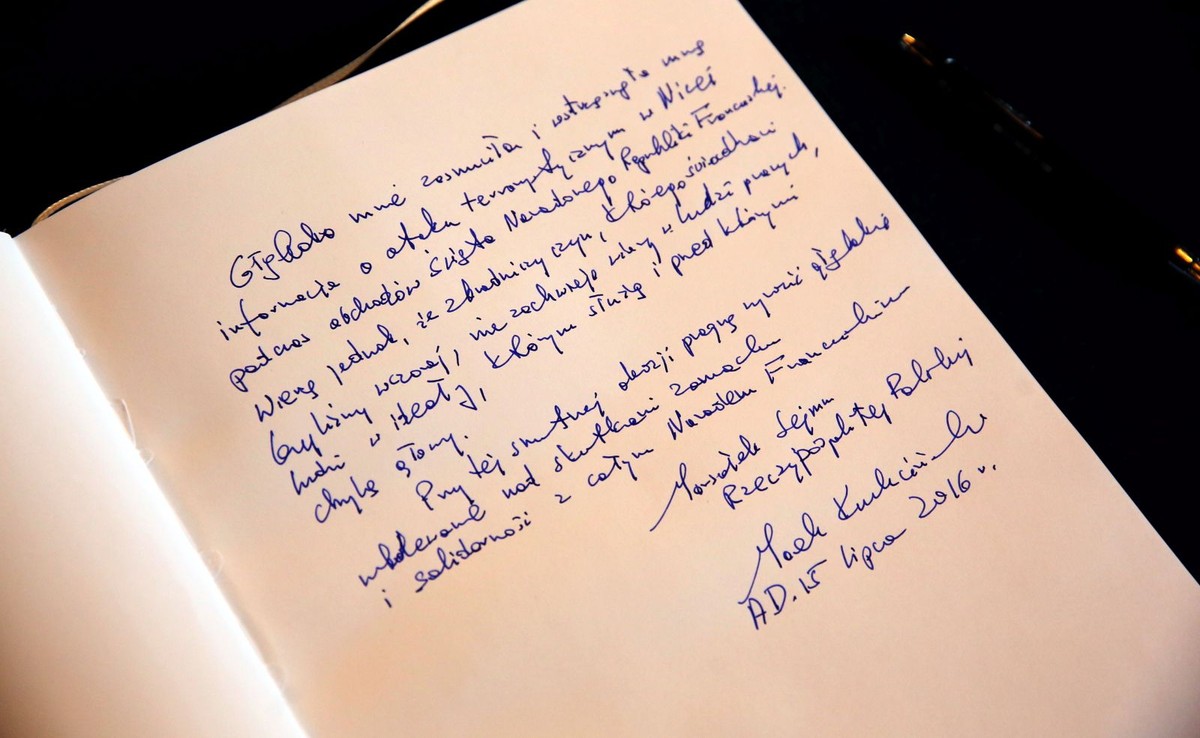 Głęboko mnie zasmuciła i wstrząsnęła mną
informacja o ataku terrorystycznym w Nicei
podczas obchodów Święta Narodowego Republiki Francuskiej.
Wierzę jednak, że zbrodniczy czyn, którego świadkami
byliśmy wczoraj, nie zachwieje wiary w ludzi prawych,
ludzi w ideały, którym służą i przed którymi
chylę głowę.
Przy tej smutnej okazji pragnę wyrazić głębokie
ubolewanie nad skutkami zamachu
i solidarność z całym Narodem Francuskim
Marszałek Sejmu
Rzeczypospolitej Polskiej
Marek Kuchciński
AD. 15 lipca 2016 r.